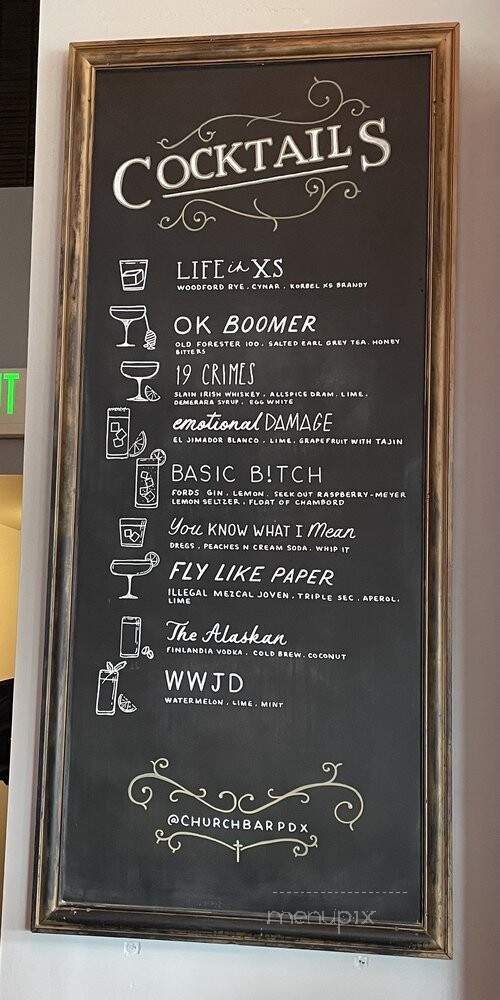 COCKTAILS
LIFE in XS
WOODFORD RYE . CYNAR . KORBEL XS BRANDY
OK BOOMER
OLD FORESTER 100 . SALTED EARL GREY TEA . HONEY
BITTERS
19 CRIMES
SLAIN IRISH WHISKEY . ALLSPICE DRAM . LIME .
DEMERARA SYRUP . EGG WHITE
emotional DAMAGE
EL JIMADOR BLANCO . LIME . GRAPEFRUIT WITH TAJIN
BASIC B!TCH
FORDS GIN . LEMON . SEEK OUT RASPBERRY-MEYER
LEMON SELTZER . FLOAT OF CHAMBORD
You KNOW WHAT I Mean
DREGS . PEACHES N CREAM SODA . WHIP IT
FLY LIKE PAPER
ILLEGAL MEZCAL JOVEN . TRIPLE SEC . APEROL .
LIME
The Alaskan
FINLANDIA VODKA . COLD BREW . COCONUT
WWJD
WATERMELON . LIME . MINT
@CHURCHBARPDX
menupix